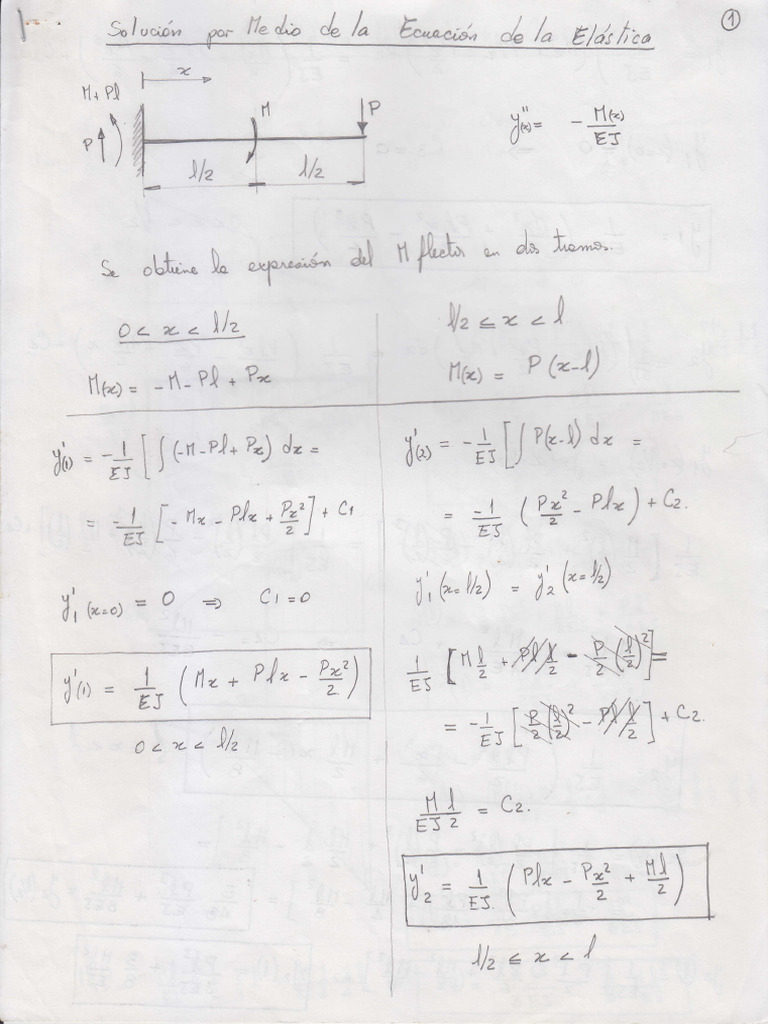 Solución por Medio de la Ecuación de la Elástica
1
x
M+Pl
M
P
P
l/2
l/2
y''(x) = - M(x)/EJ
Se obtiene la expresión del M flector en dos tramos.
0 < x < l/2
M(x) = -M - Pl + Px
l/2 ≤ x < l
M(x) = P (x-l)
y'(1) = - 1/EJ [ ∫ (-M - Pl + Px) dx =
= -1/EJ [ -Mx - Plx + Px²/2 ] + C1
y'1 (x=0) = 0 ⇒ C1 = 0
y'(1) = 1/EJ ( Mx + Plx - Px²/2 )
0 < x < l/2
y'(2) = - 1/EJ [ ∫ P(x-l) dx =
= -1/EJ ( Px²/2 - Plx ) + C2.
y'1 (x=l/2) = y'2 (x=l/2)
1/EJ [ M l/2 + Pl l/2 - P/2 (l/2)² ] =
= - 1/EJ [ P/2 (l/2)² - Pl l/2 ] + C2.
M/EJ l/2 = C2.
y'2 = 1/EJ. ( Plx - Px²/2 + Ml/2 )
l/2 ≤ x < l